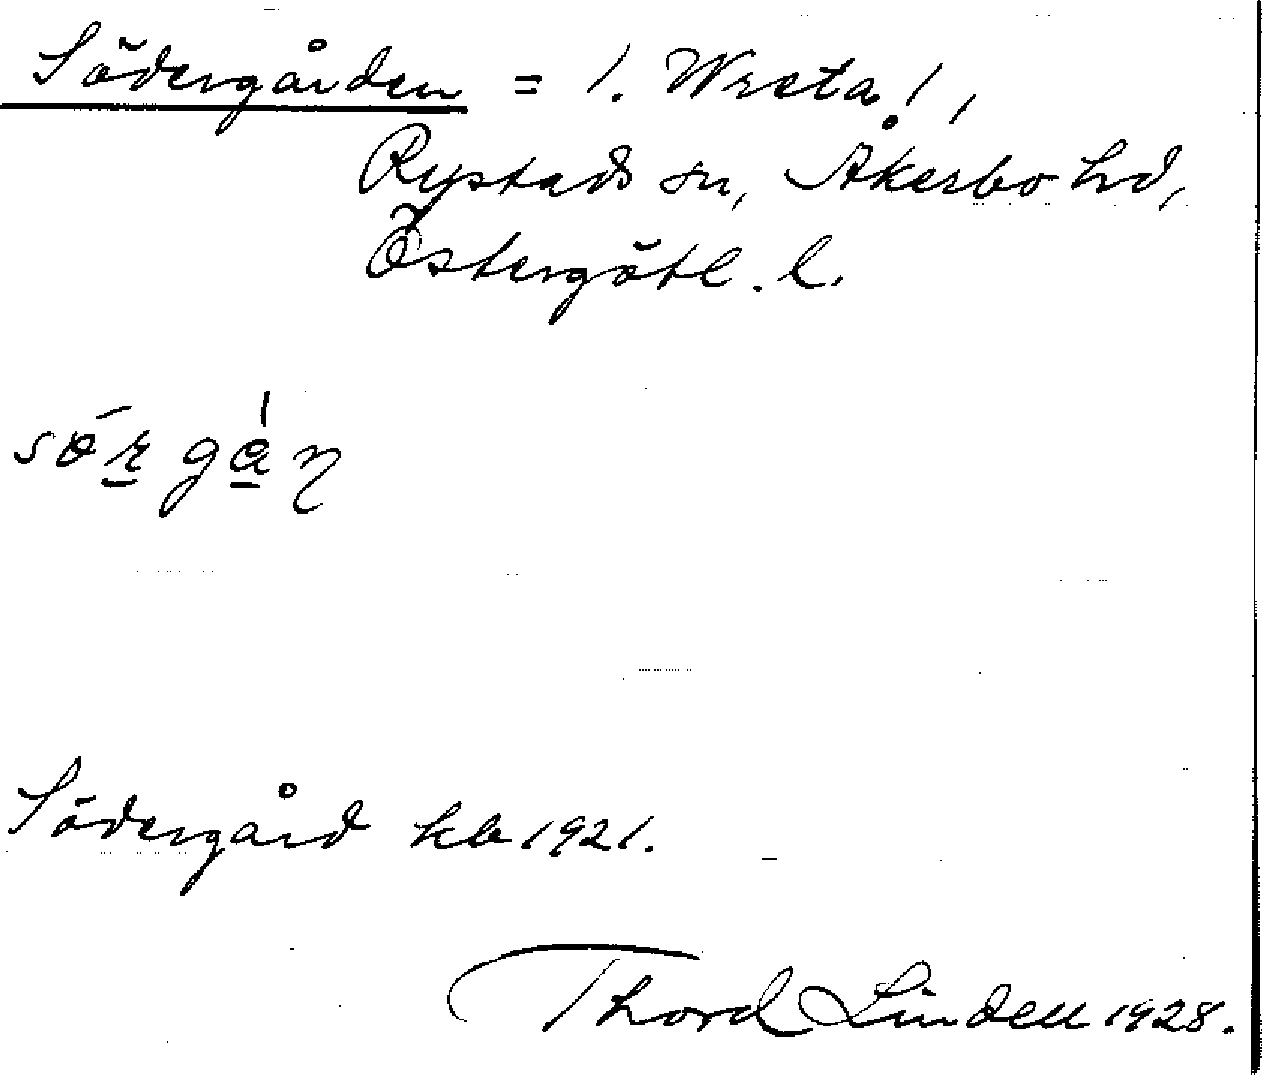 Södergården = 1. Wreta!,
Rystads sn, Åkerbo hd,
Östergötl. l.
Södergård kb 1921.
Thord Lindell 1928.